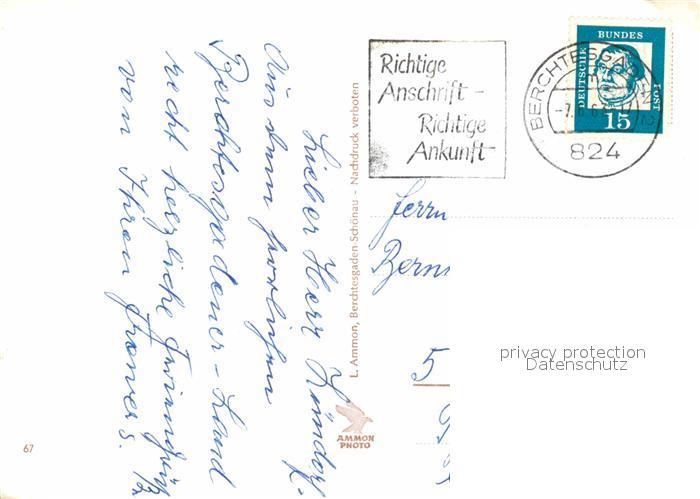 Lieber Herr
Aus dem herrlichen
Berchtesgadener-Land
recht herzliche
von Ihren
L. Ammon, Berchtesgaden-Schönau - Nachdruck verboten
AMMON
PHOTO
67
Richtige
Anschrift -
Richtige
Ankunft
BERCHTESGADEN
824
DEUTSCHE BUNDES POST
15
Herrn
Bern
5
privacy protection
Datenschutz